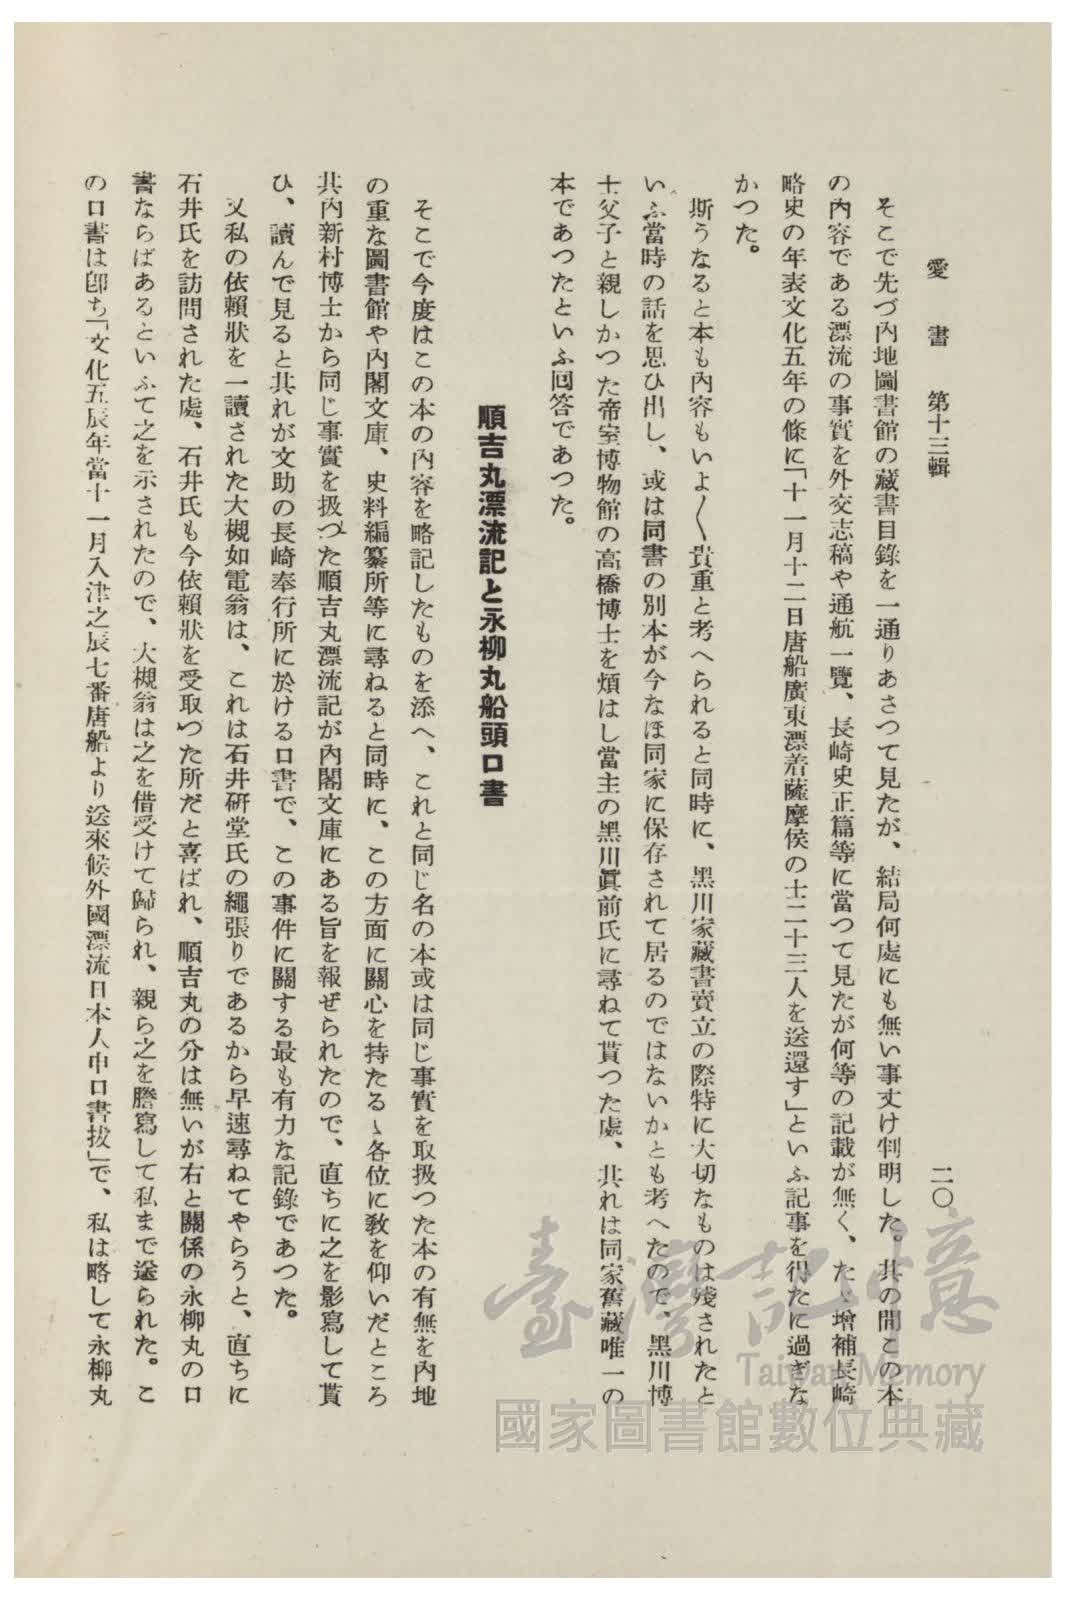 愛書 第十三輯 二〇
そこで先づ內地圖書館の藏書目錄を一通りあさつて見たが、結局何處にも無い事丈け判明した。其の間この本
の內容である漂流の事實を外交志稿や通航一覽、長崎史正篇等に當つて見たが何等の記載が無く、たゞ增補長崎
略史の年表文化五年の條に「十一月十二日唐船廣東漂着薩摩侯の士二十三人を送還す」といふ記事を得たに過ぎな
かつた。
斯うなると本も內容もいよ〱貴重と考へられると同時に、黑川家藏書賣立の際特に大切なものは殘されたと
いふ當時の話を思ひ出し、或は同書の別本が今なほ同家に保存されて居るのではないかとも考へたので、黑川博
士父子と親しかつた帝室博物館の高橋博士を煩はし當主の黑川眞前氏に尋ねて貰つた處、其れは同家舊藏唯一の
本であつたといふ回答であつた。
順吉丸漂流記と永柳丸船頭口書
そこで今度はこの本の內容を略記したものを添へ、これと同じ名の本或は同じ事實を取扱つた本の有無を內地
の重な圖書館や內閣文庫、史料編纂所等に尋ねると同時に、この方面に關心を持たるゝ各位に敎を仰いだところ
其內新村博士から同じ事實を扱つた順吉丸漂流記が內閣文庫にある旨を報ぜられたので、直ちに之を影寫して貰
ひ、讀んで見ると其れが文助の長崎奉行所に於ける口書で、この事件に關する最も有力な記錄であつた。
又私の依賴狀を一讀された大槻如電翁は、これは石井硏堂氏の繩張りであるから早速尋ねてやらうと、直ちに
石井氏を訪問された處、石井氏も今依賴狀を受取つた所だと喜ばれ、順吉丸の分は無いが右と關係の永柳丸の口
書ならばあるといふて之を示されたので、大槻翁は之を借受けて歸られ、親ら之を謄寫して私まで送られた。こ
の口書は卽ち「文化五辰年當十一月入津之辰七番唐船より送來候外國漂流日本人申口書拔」で、私は略して永柳丸
臺灣記憶
Taiwan Memory
國家圖書館數位典藏